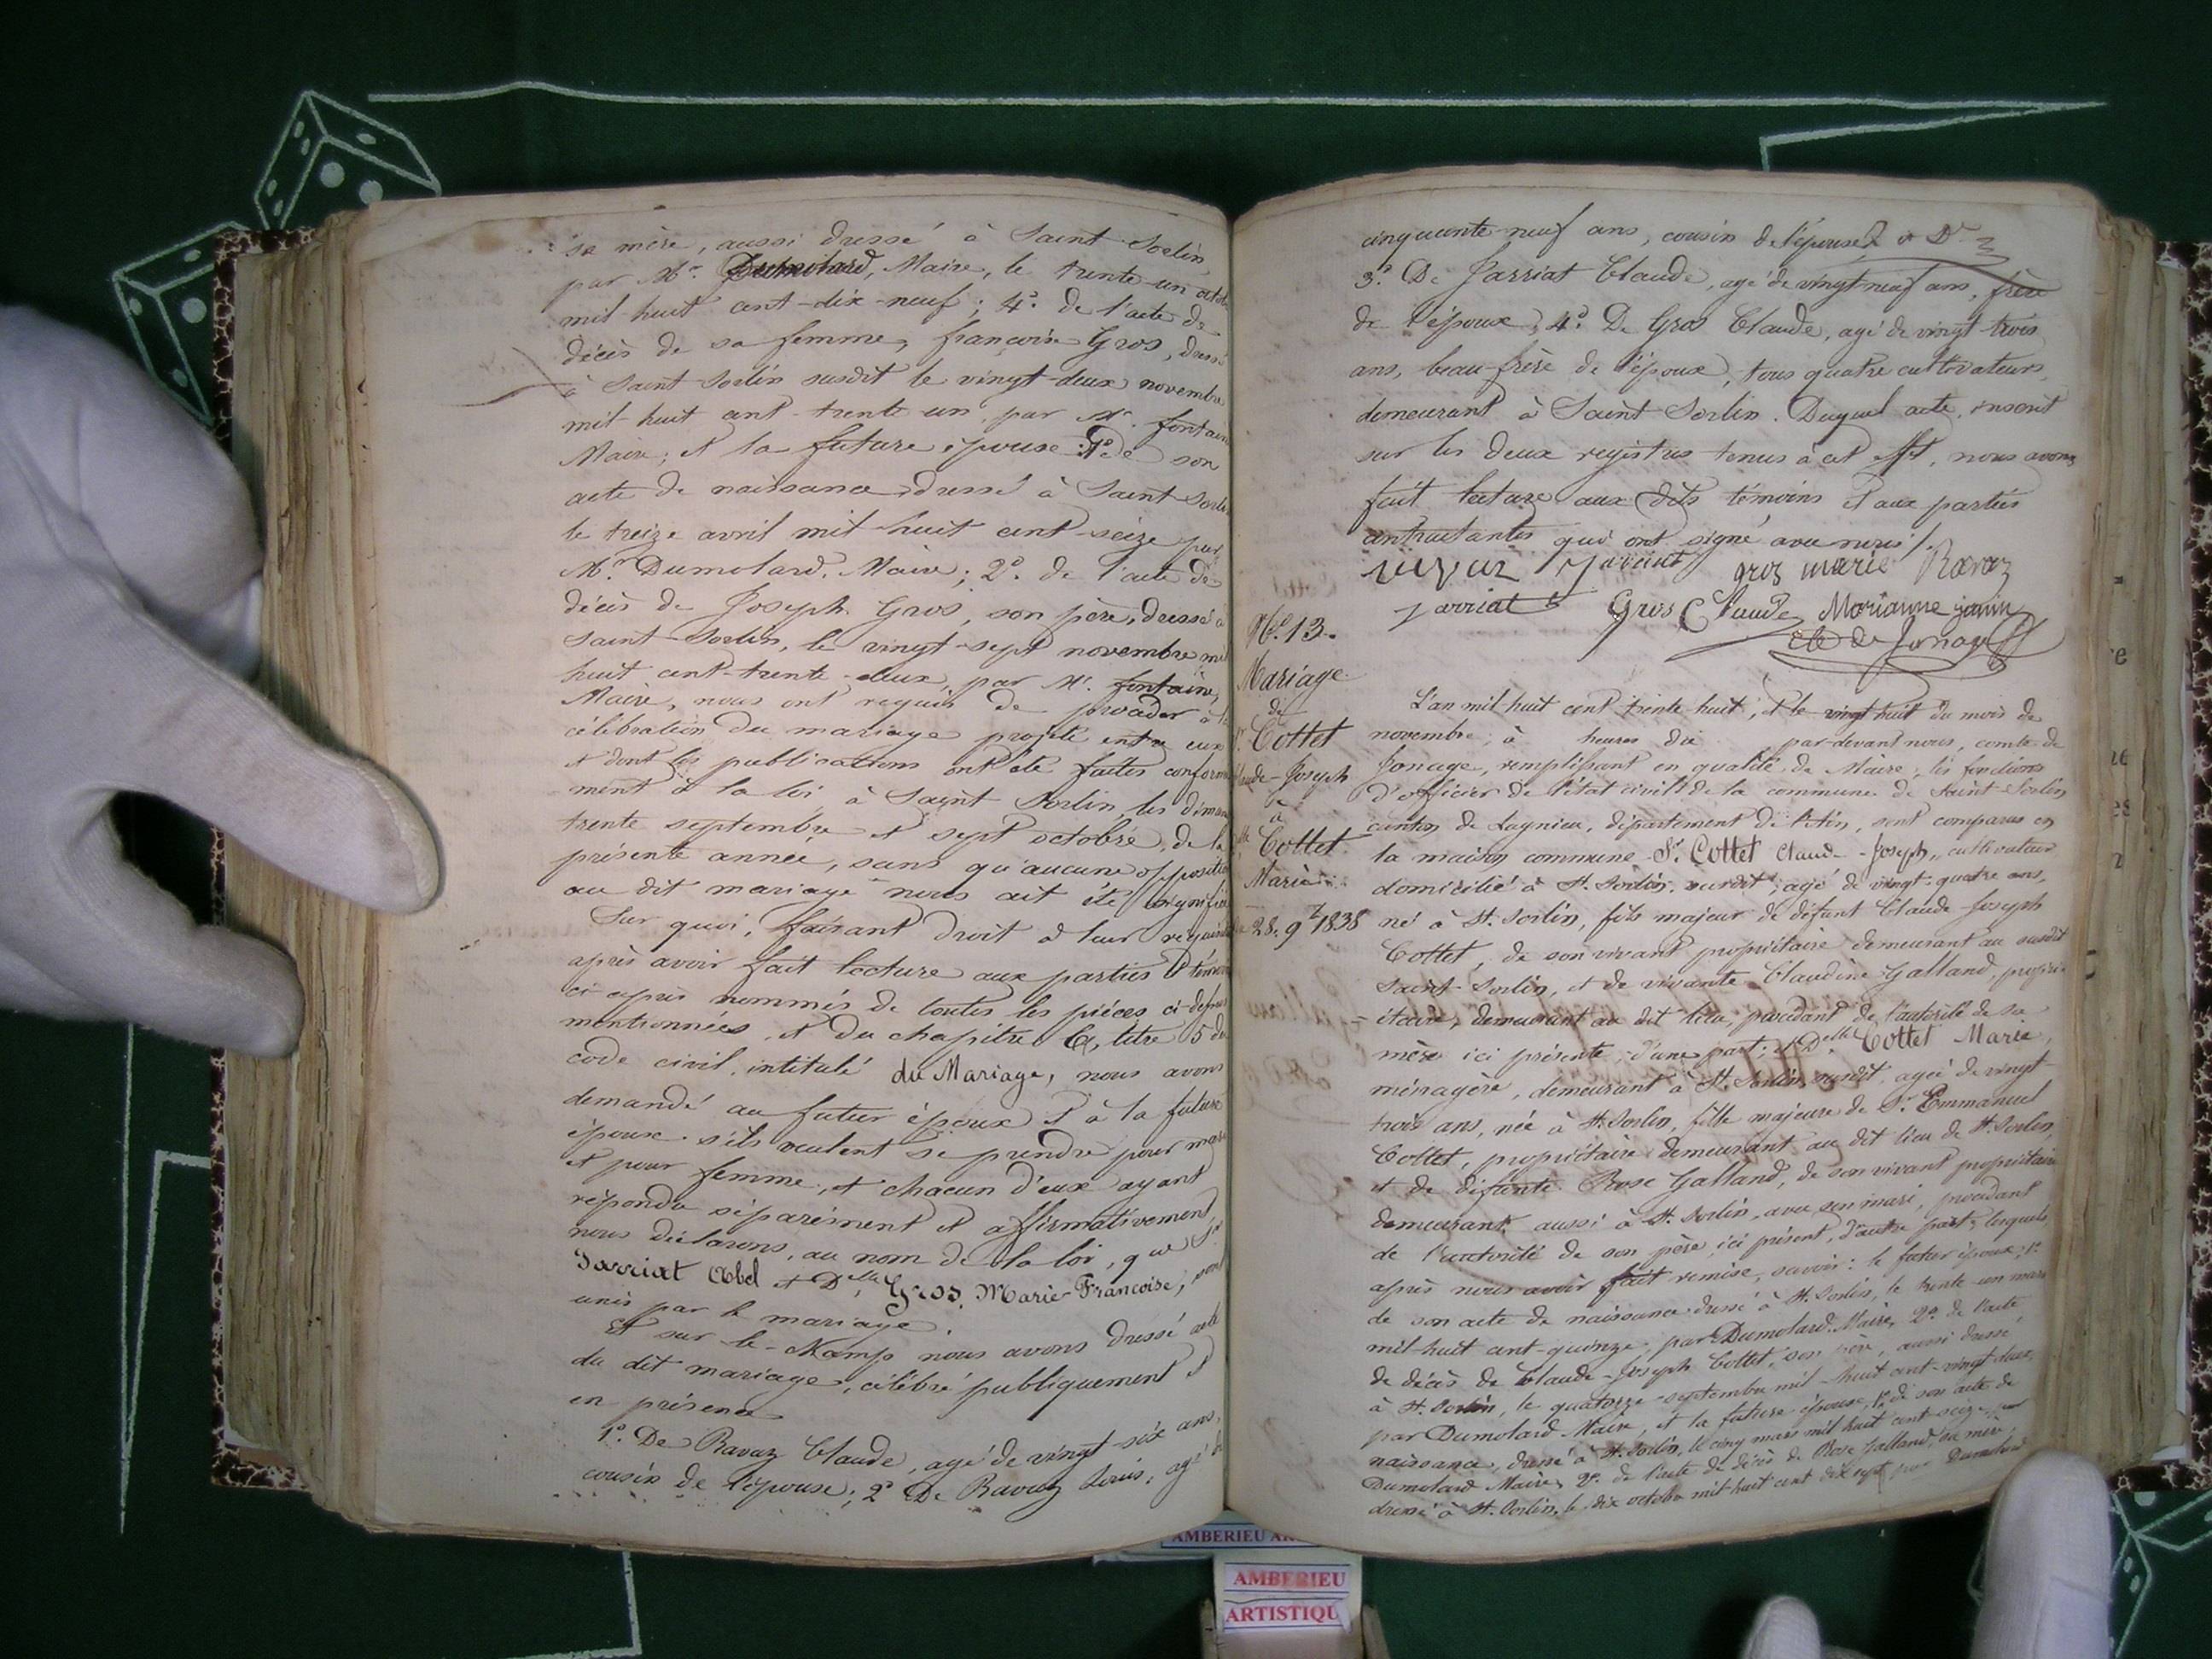 sa mère, aussi dressé à Saint Sorlin
par Mr. Dumolard, Maire, le trente-un octobre
mil huit cent-dix-neuf; 4º. de l'acte de
décès de sa femme, françoise Gros, dressé
à Saint Sorlin susdit le vingt-deux novembre
mil-huit cent-trente-un, par Mr. fontaine
Maire; et la future épouse: 1º de son
acte de naissance dressé à Saint Sorlin
le treize avril mil-huit cent-seize par
Mr. Dumolard, Maire; 2º. de l'acte de
décès de Joseph Gros, son père, dressé à
Saint-Sorlin, le vingt-sept novembre mil
huit cent-trente-deux, par Mr. fontaine,
Maire, nous ont requis de procéder à la
célébration du mariage projeté entre eux
et dont les publications ont été faites conformé
ment à la loi, à Saint Sorlin, les dimanches
trente septembre et sept octobre, de la
présente année, sans qu'aucune opposition
au dit mariage nous ait été signifiée
Sur quoi, faisant droit à leur réquisition
après avoir fait lecture aux parties et témoins
ci-après nommés de toutes les pièces ci-dessus
mentionnées, et du chapitre 6, titre 5 du
code civil, intitulé du Mariage, nous avons
demandé au futur époux et à la future
épouse s'ils veulent se prendre pour mari
et pour femme, et chacun d'eux ayant
répondu séparément et affirmativement,
nous déclarons, au nom de la loi, que Sr.
Jarriat Abel et Delle. Gros, Marie-Francoise, sont
unis par le mariage.
Et sur-le-champ nous avons dressé acte
du dit mariage, célébré publiquement et
en présence
1º. De Ravaz Claude, agé de vingt-six ans,
cousin de l'épouse; 2º De Ravaz Louis, agé de
cinquante-neuf ans, cousin de l'épouse
3º. De Jarriat Claude, agé de vingt neuf ans, frère
de l'époux; 4º. De Gros Claude, agé de vingt trois
ans, beau-frère de l'époux, tous quatre cultivateurs,
demeurant à Saint Sorlin. Duquel acte, inscrit
sur les deux registres tenus à cet effet, nous avons
fait lecture aux dits témoins et aux parties
contractantes qui ont signé avec nous.
gros marie Ravaz
jarriat Gros Claude Marianne janin
Cte de Jonage
No. 13.
Mariage
de
Sr. Cottet
Claude-Joseph
à
Delle Cottet
Marie
du 28. 9bre 1838
L'an mil-huit cent trente-huit, et le vingt huit du mois de
novembre, à heures dix par-devant nous, comte de
Jonage, remplissant en qualité de Maire, les fonctions
d'officier de l'état civil de la commune de Saint-Sorlin
canton de Lagnieu, département de l'Ain, sont comparus en
la maison commune Sr. Cottet Claude-Joseph, cultivateur
domicilié à St. Sorlin, susdit, agé de vingt-quatre ans,
né à St. Sorlin, fils majeur de défunt Claude Joseph
Cottet, de son vivant propriétaire demeurant au susdit
Saint-Sorlin, et de vivante Claudine Galland, propri-
étaire, demeurant au dit lieu, procédant de l'autorité de sa
mère ici présente, d'une part; et Delle Cottet Marie,
ménagère, demeurant à St. Sorlin, susdit, agée de vingt-
trois ans, née à St. Sorlin, fille majeure de Sr. Emmanuel
Cottet, propriétaire demeurant au dit lieu de St. Sorlin,
et de défunte Rose Galland, de son vivant propriétaire
demeurant aussi à St. Sorlin, avec son mari, procédant
de l'autorité de son père, ici présent, d'autre part; lesquels
après nous avoir fait remise, savoir: le futur époux; 1º.
de son acte de naissance dressé à St. Sorlin, le trente-un mars
mil-huit cent-quinze, par Dumolard Maire, 2º. de l'acte
de décès de Claude-Joseph Cottet, son père, aussi dressé
à St. Sorlin, le quatorze septembre mil-huit cent-vingt deux,
par Dumolard Maire, et la future épouse, 1º. de son acte de
naissance, dressé à St. Sorlin, le cinq mars mil huit cent seize, par
Dumolard Maire, 2º. de l'acte de décès de Rose Galland, sa mère,
dressé à St. Sorlin, le dix octobre mil-huit cent dix sept par Dumolard
AMBERIEU
AMBERIEU
ARTISTIQU